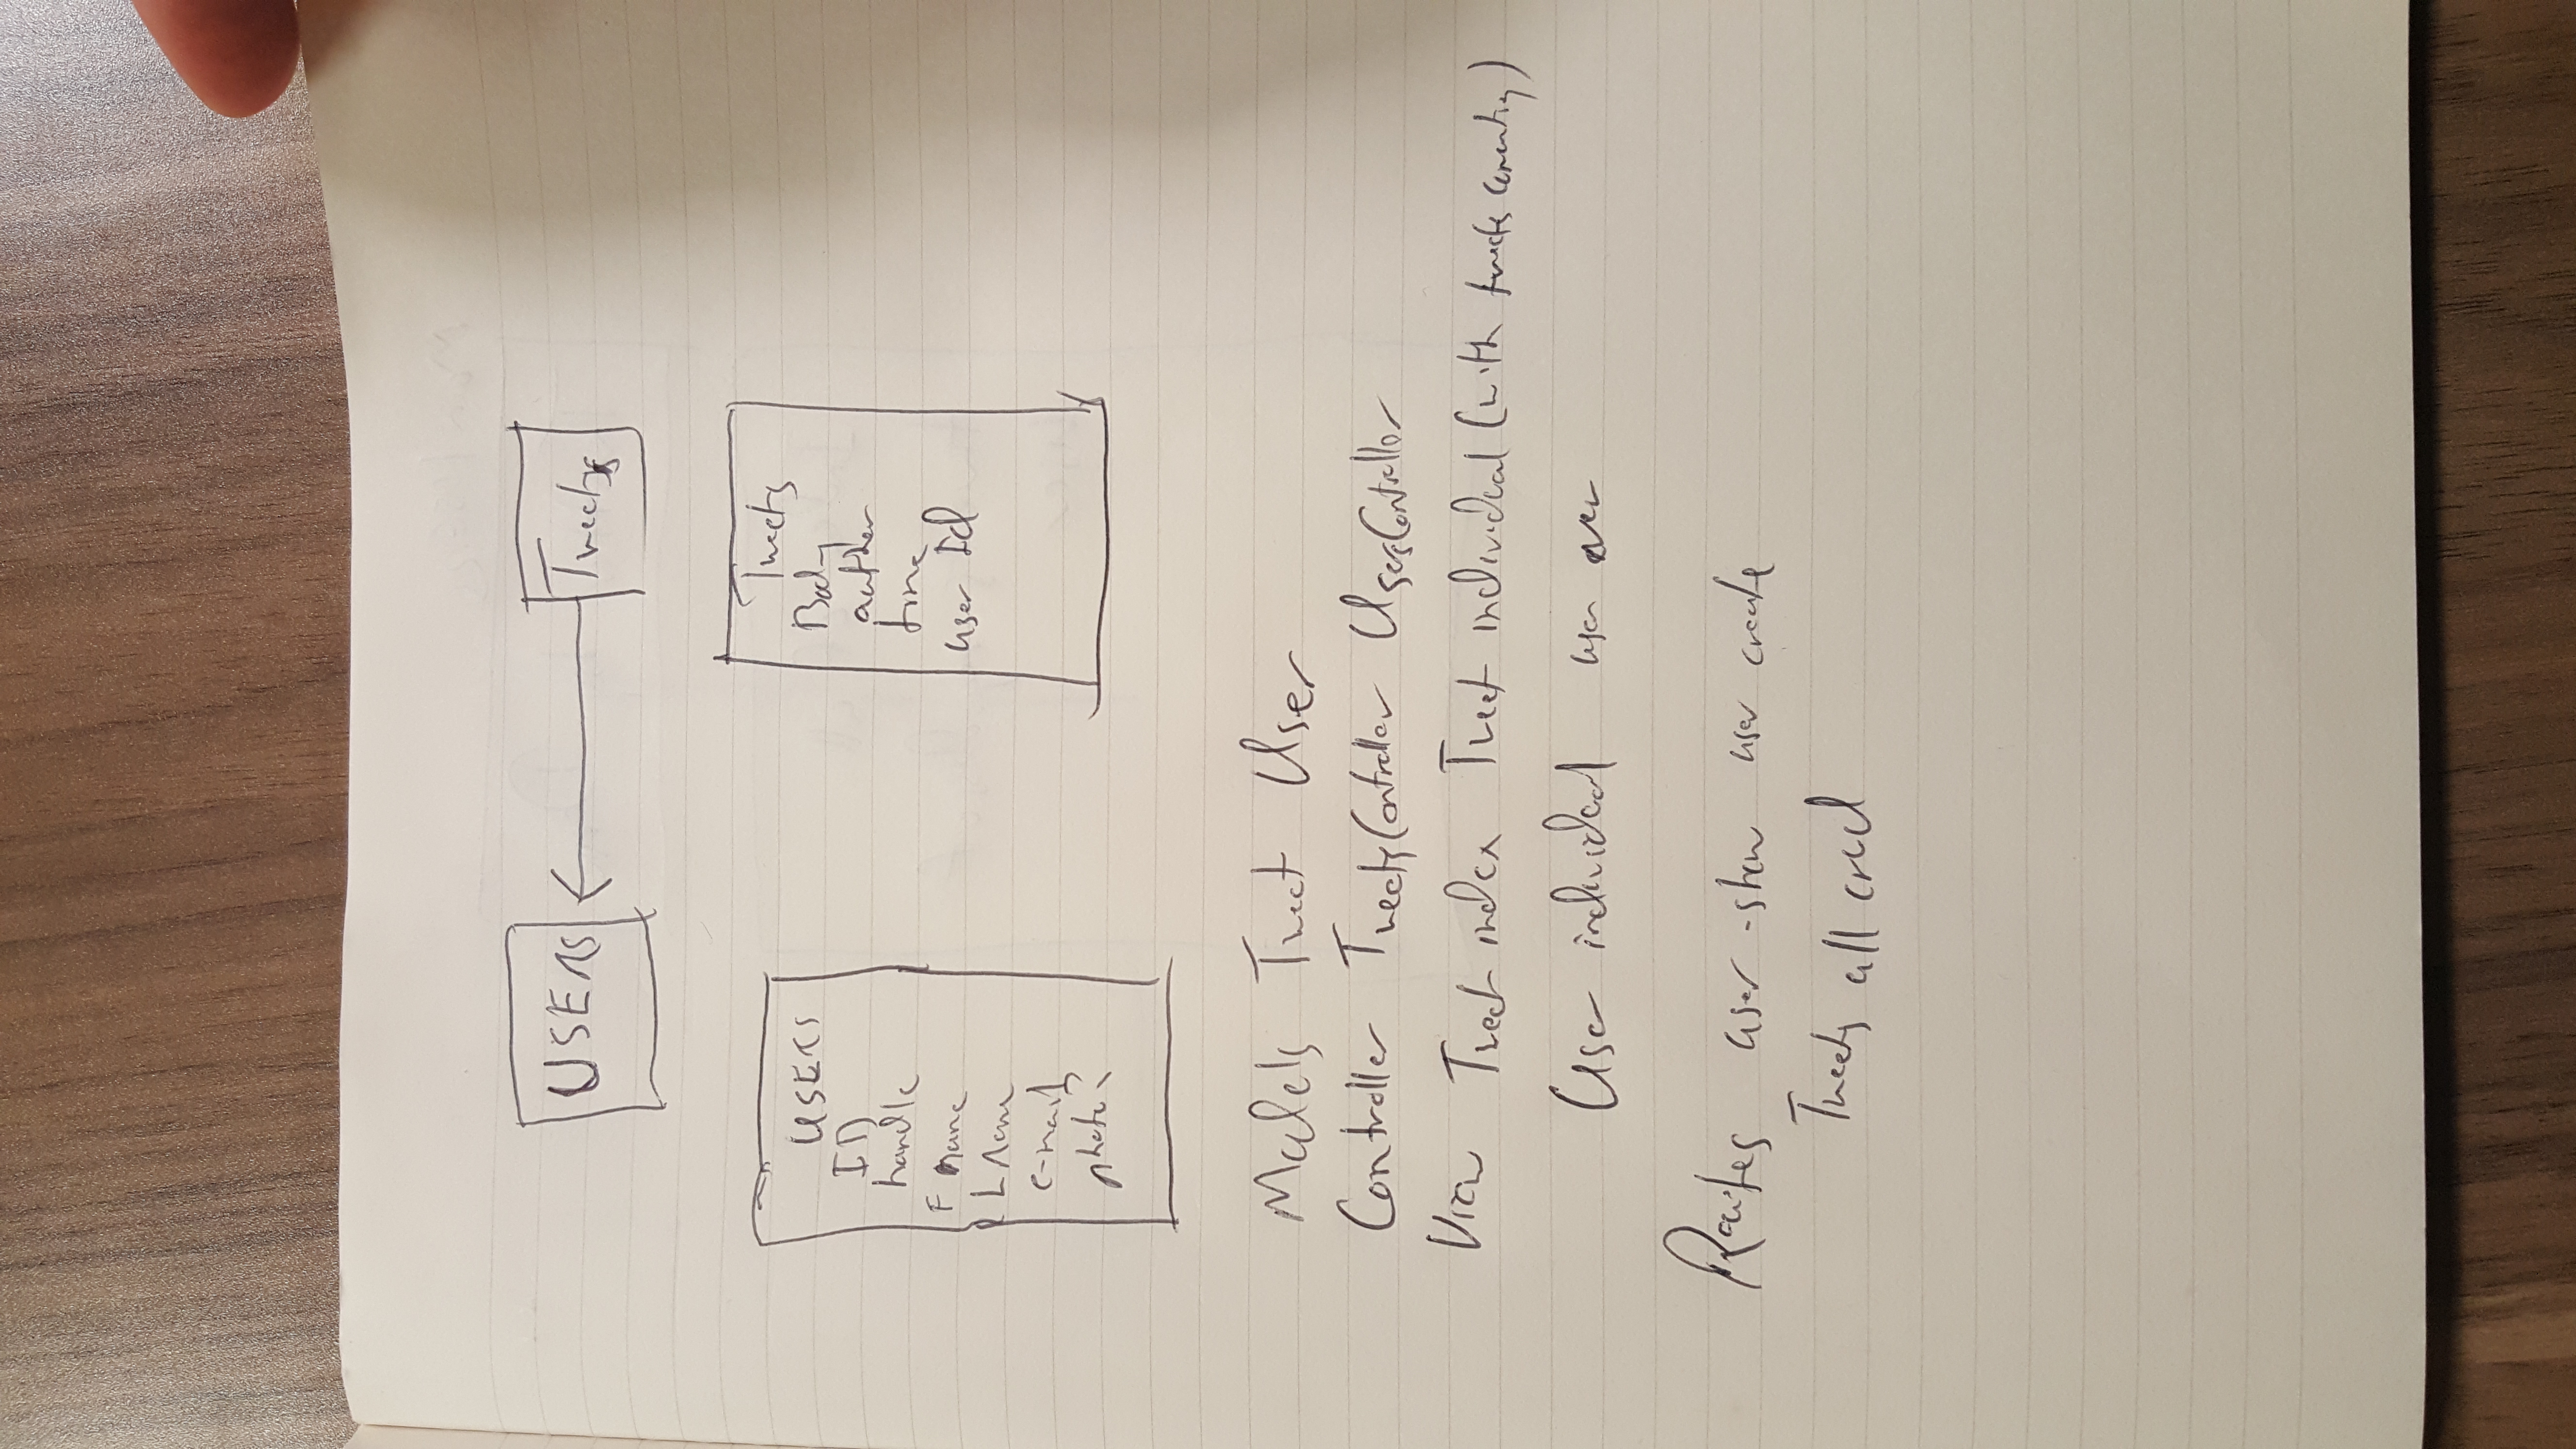 USERS Tweets
USERS
ID
handle
F name
L name
e-mail
photo?
Tweets
Body
author
time
user Id
Models Tweet User
Controller TweetsController UsersController
View Tweet index Tweet individual (with tweets
User individual user
Routes user - show user create
Tweets all crud